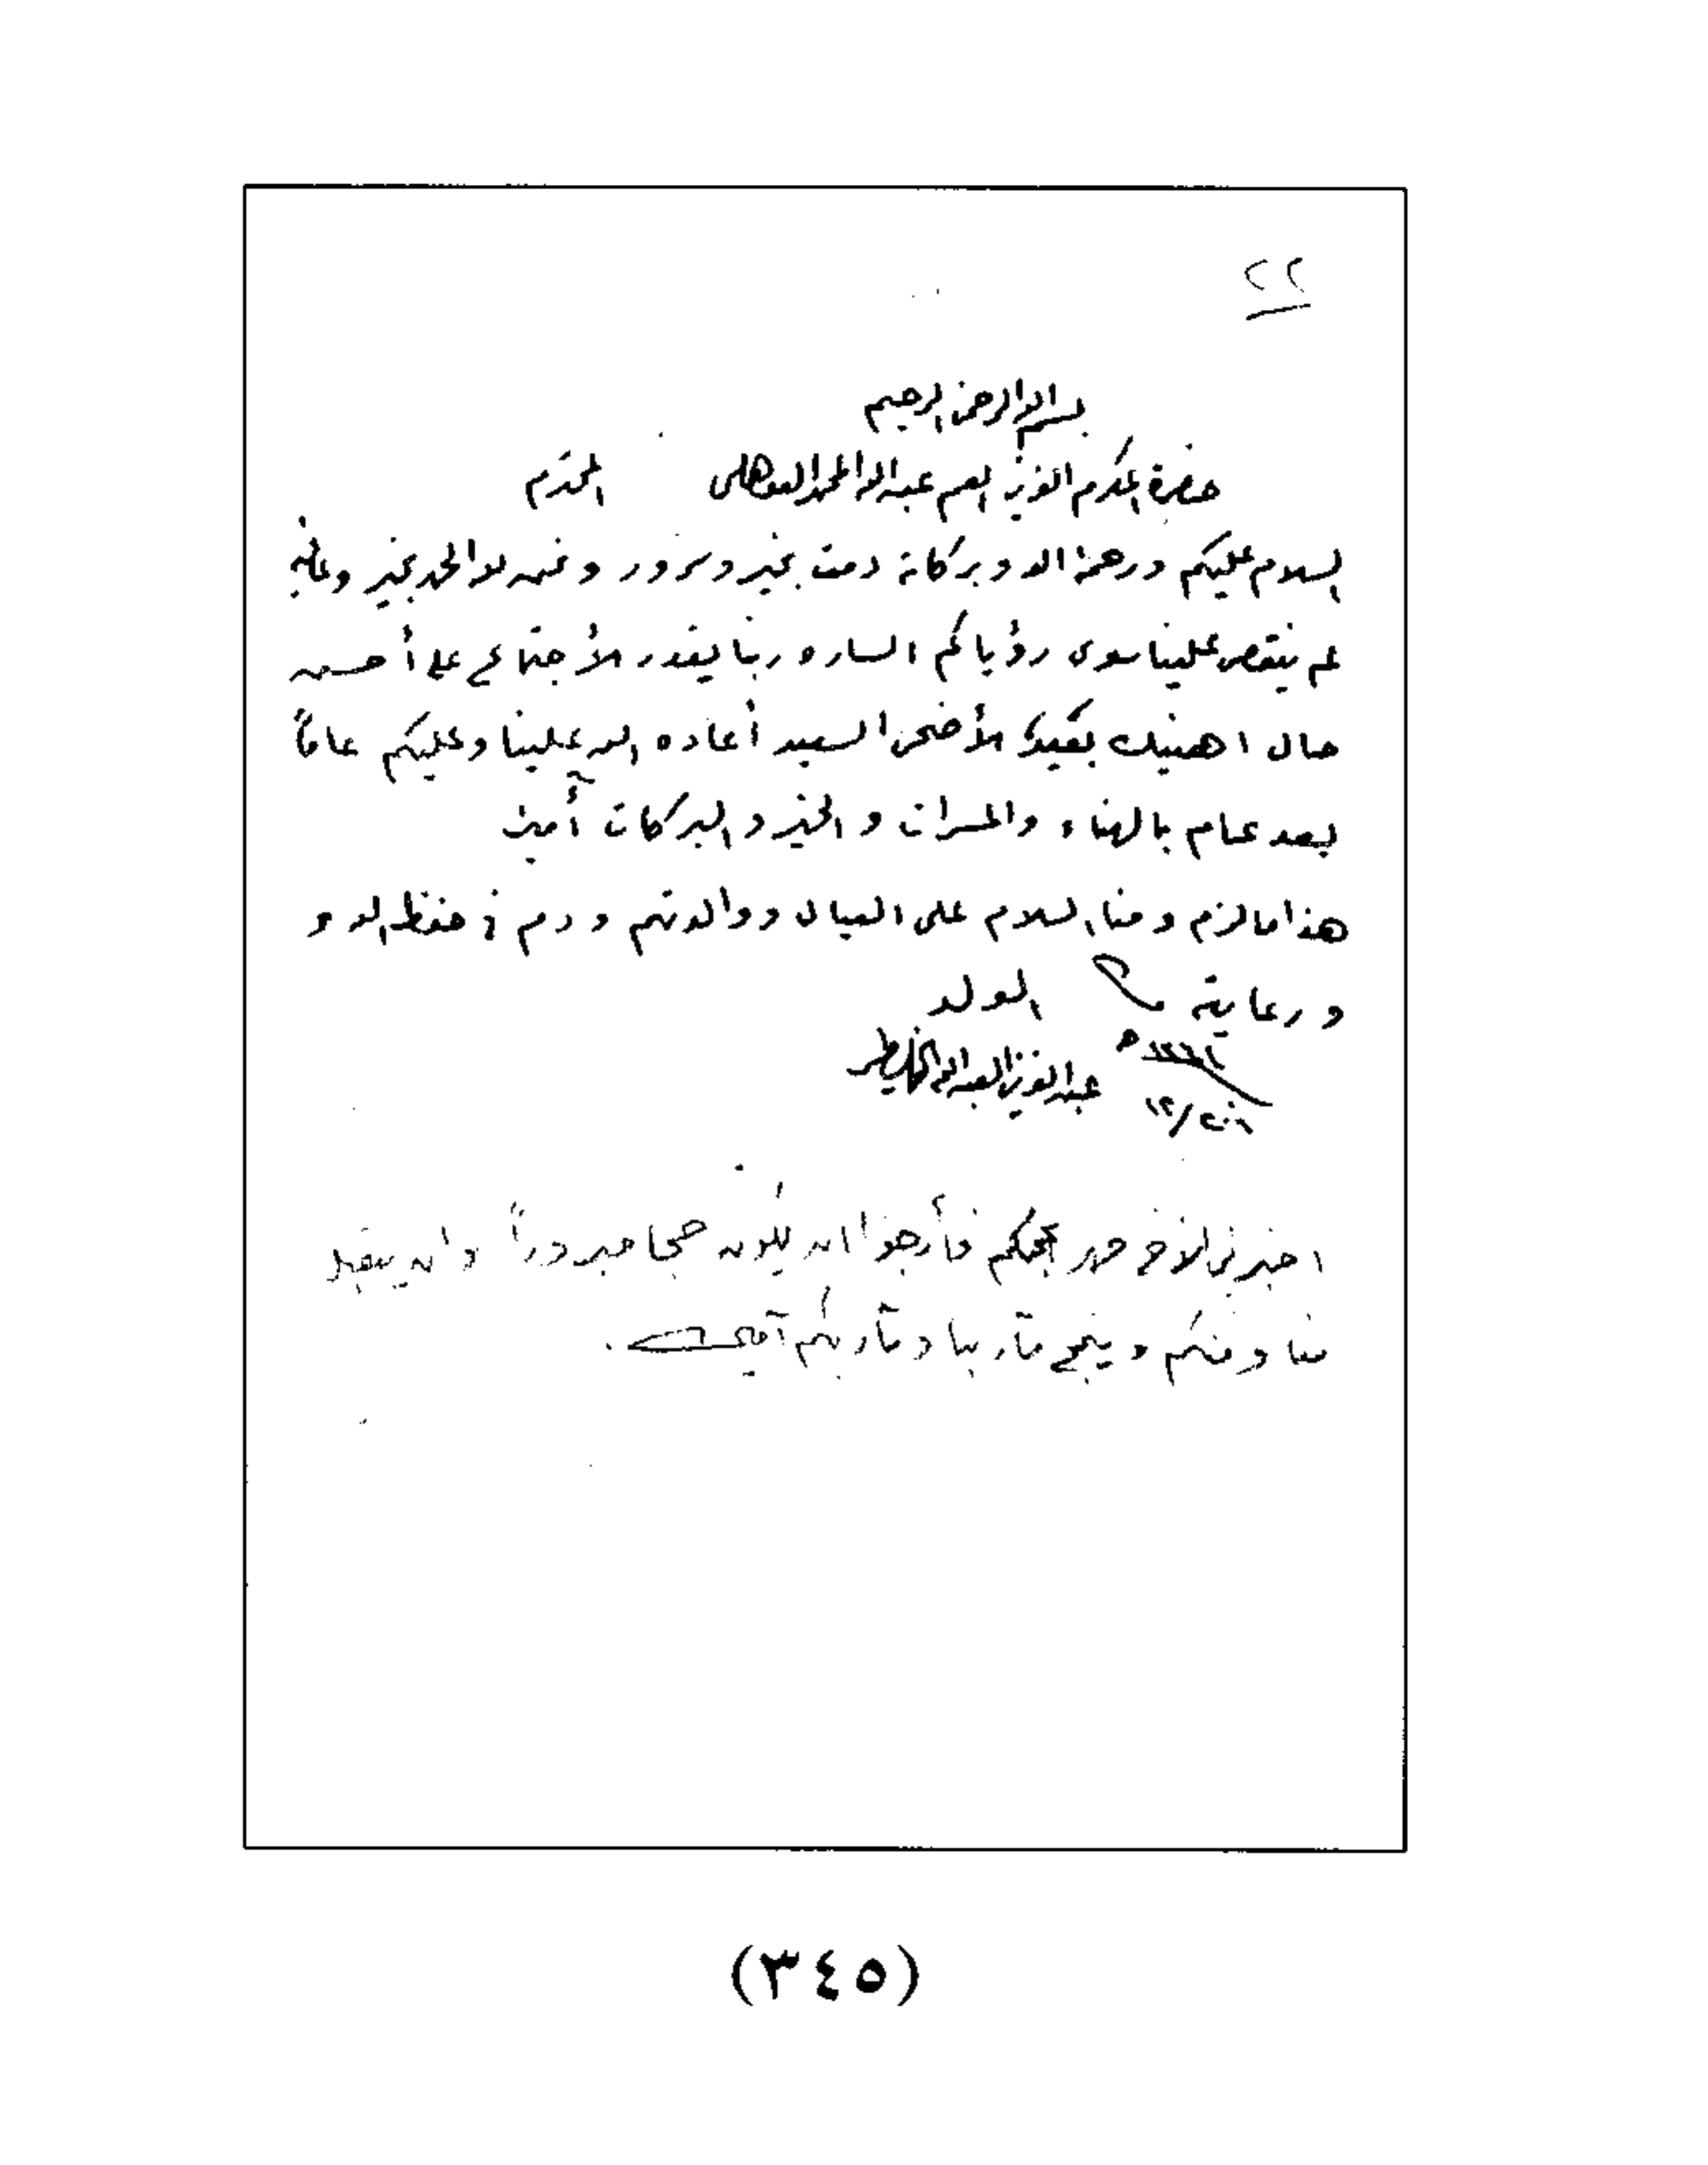 ٢٢
بسم الله الرحمن الرحيم
حضرة المكرم العزيز العم عبدالله المحمد العوهلي المحترم
السلام عليكم ورحمة الله وبركاته دمت بخير وسرور ونحن لله الحمد بخير وعافية
لم ينقص علينا سوى رؤياكم الساره ربنا يقدر الأجتماع على أحسن
حال اهنيك بعيد الأضحى السعيد أعاده الله علينا وعليكم عاماً
بعد عام بالهناء والمسرات والخير والبركات آمين
هذا مالزم ومنا السلام على العيال ووالدتهم ودم في حفظ الله و
ورعايته الولد
عبدالعزيز العبدالله
اخبرني الأخ حمد بحجكم فأرجوا ان يكون حجا مبروراً وان يتقبل
منا ومنكم وينجح مآربنا ومآربكم آمين.
(٣٤٥)